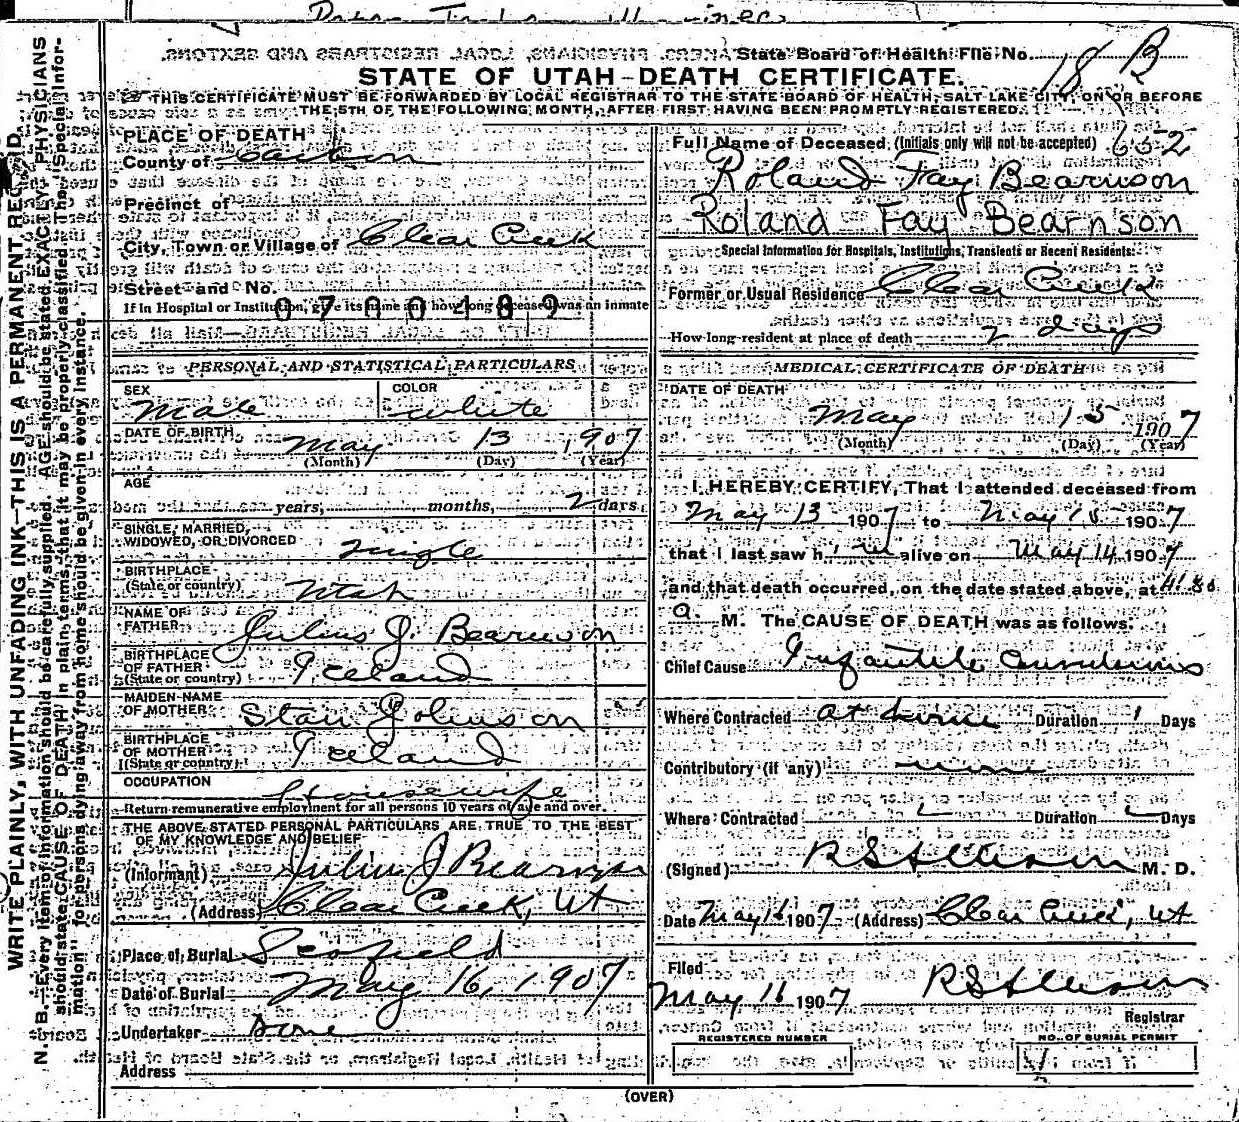 State Board of Health File No. 18 B
STATE OF UTAH-DEATH CERTIFICATE.
THIS CERTIFICATE MUST BE FORWARDED BY LOCAL REGISTRAR TO THE STATE BOARD OF HEALTH, SALT LAKE CITY, ON OR BEFORE
THE 5TH OF THE FOLLOWING MONTH, AFTER FIRST HAVING BEEN PROMPTLY REGISTERED.
WRITE PLAINLY, WITH UNFADING INK—THIS IS A PERMANENT RECORD.
N. B.—Every item of information should be carefully supplied. AGE should be stated EXACTLY. PHYSICIANS
should state CAUSE OF DEATH in plain terms, that it may be properly classified. The "Special Infor-
mation" for persons dying away from home should be given in every instance.
PLACE OF DEATH
County of Carbon
Precinct of
City, Town or Village of Clear Creek
Street and No.
If in Hospital or Institution, give its name and how long deceased was an inmate
0700489
PERSONAL AND STATISTICAL PARTICULARS
SEX Male
COLOR White
DATE OF BIRTH May 13 1907
(Month) (Day) (Year)
AGE
years, months, 2 days
SINGLE, MARRIED,
WIDOWED, OR DIVORCED single
BIRTHPLACE
(State or country) Utah
NAME OF
FATHER Julius J. Bearnson
BIRTHPLACE
OF FATHER
(State or country) Iceland
MAIDEN NAME
OF MOTHER Johnson
BIRTHPLACE
OF MOTHER
(State or country) Iceland
OCCUPATION Housewife
Return remunerative employment for all persons 10 years of age and over.
THE ABOVE STATED PERSONAL PARTICULARS ARE TRUE TO THE BEST
OF MY KNOWLEDGE AND BELIEF
(Informant) Julius J Bearnson
(Address) Clear Creek, Ut
Place of Burial Scofield
Date of Burial May 16, 1907
Undertaker
Address
Full Name of Deceased (Initials only will not be accepted) 652
Roland Fay Bearnson
Roland Fay Bearnson
Special Information for Hospitals, Institutions, Transients or Recent Residents:
Former or Usual Residence Clear Creek
How long resident at place of death 2 days
MEDICAL CERTIFICATE OF DEATH
DATE OF DEATH
May 15 1907
(Month) (Day) (Year)
I HEREBY CERTIFY, That I attended deceased from
May 13 1907 to May 15 1907
that I last saw h im alive on May 14 1907
and that death occurred, on the date stated above, at
a. M. The CAUSE OF DEATH was as follows:
Chief Cause Infantile Convulsions
Where Contracted at home Duration 1 Days
Contributory (if any) none
Where Contracted Duration Days
(Signed) M. D.
Date May 16 1907 (Address) Clear Creek, Ut
Filed
May 16 1907
Registrar
REGISTERED NUMBER
NO. OF BURIAL PERMIT
(OVER)